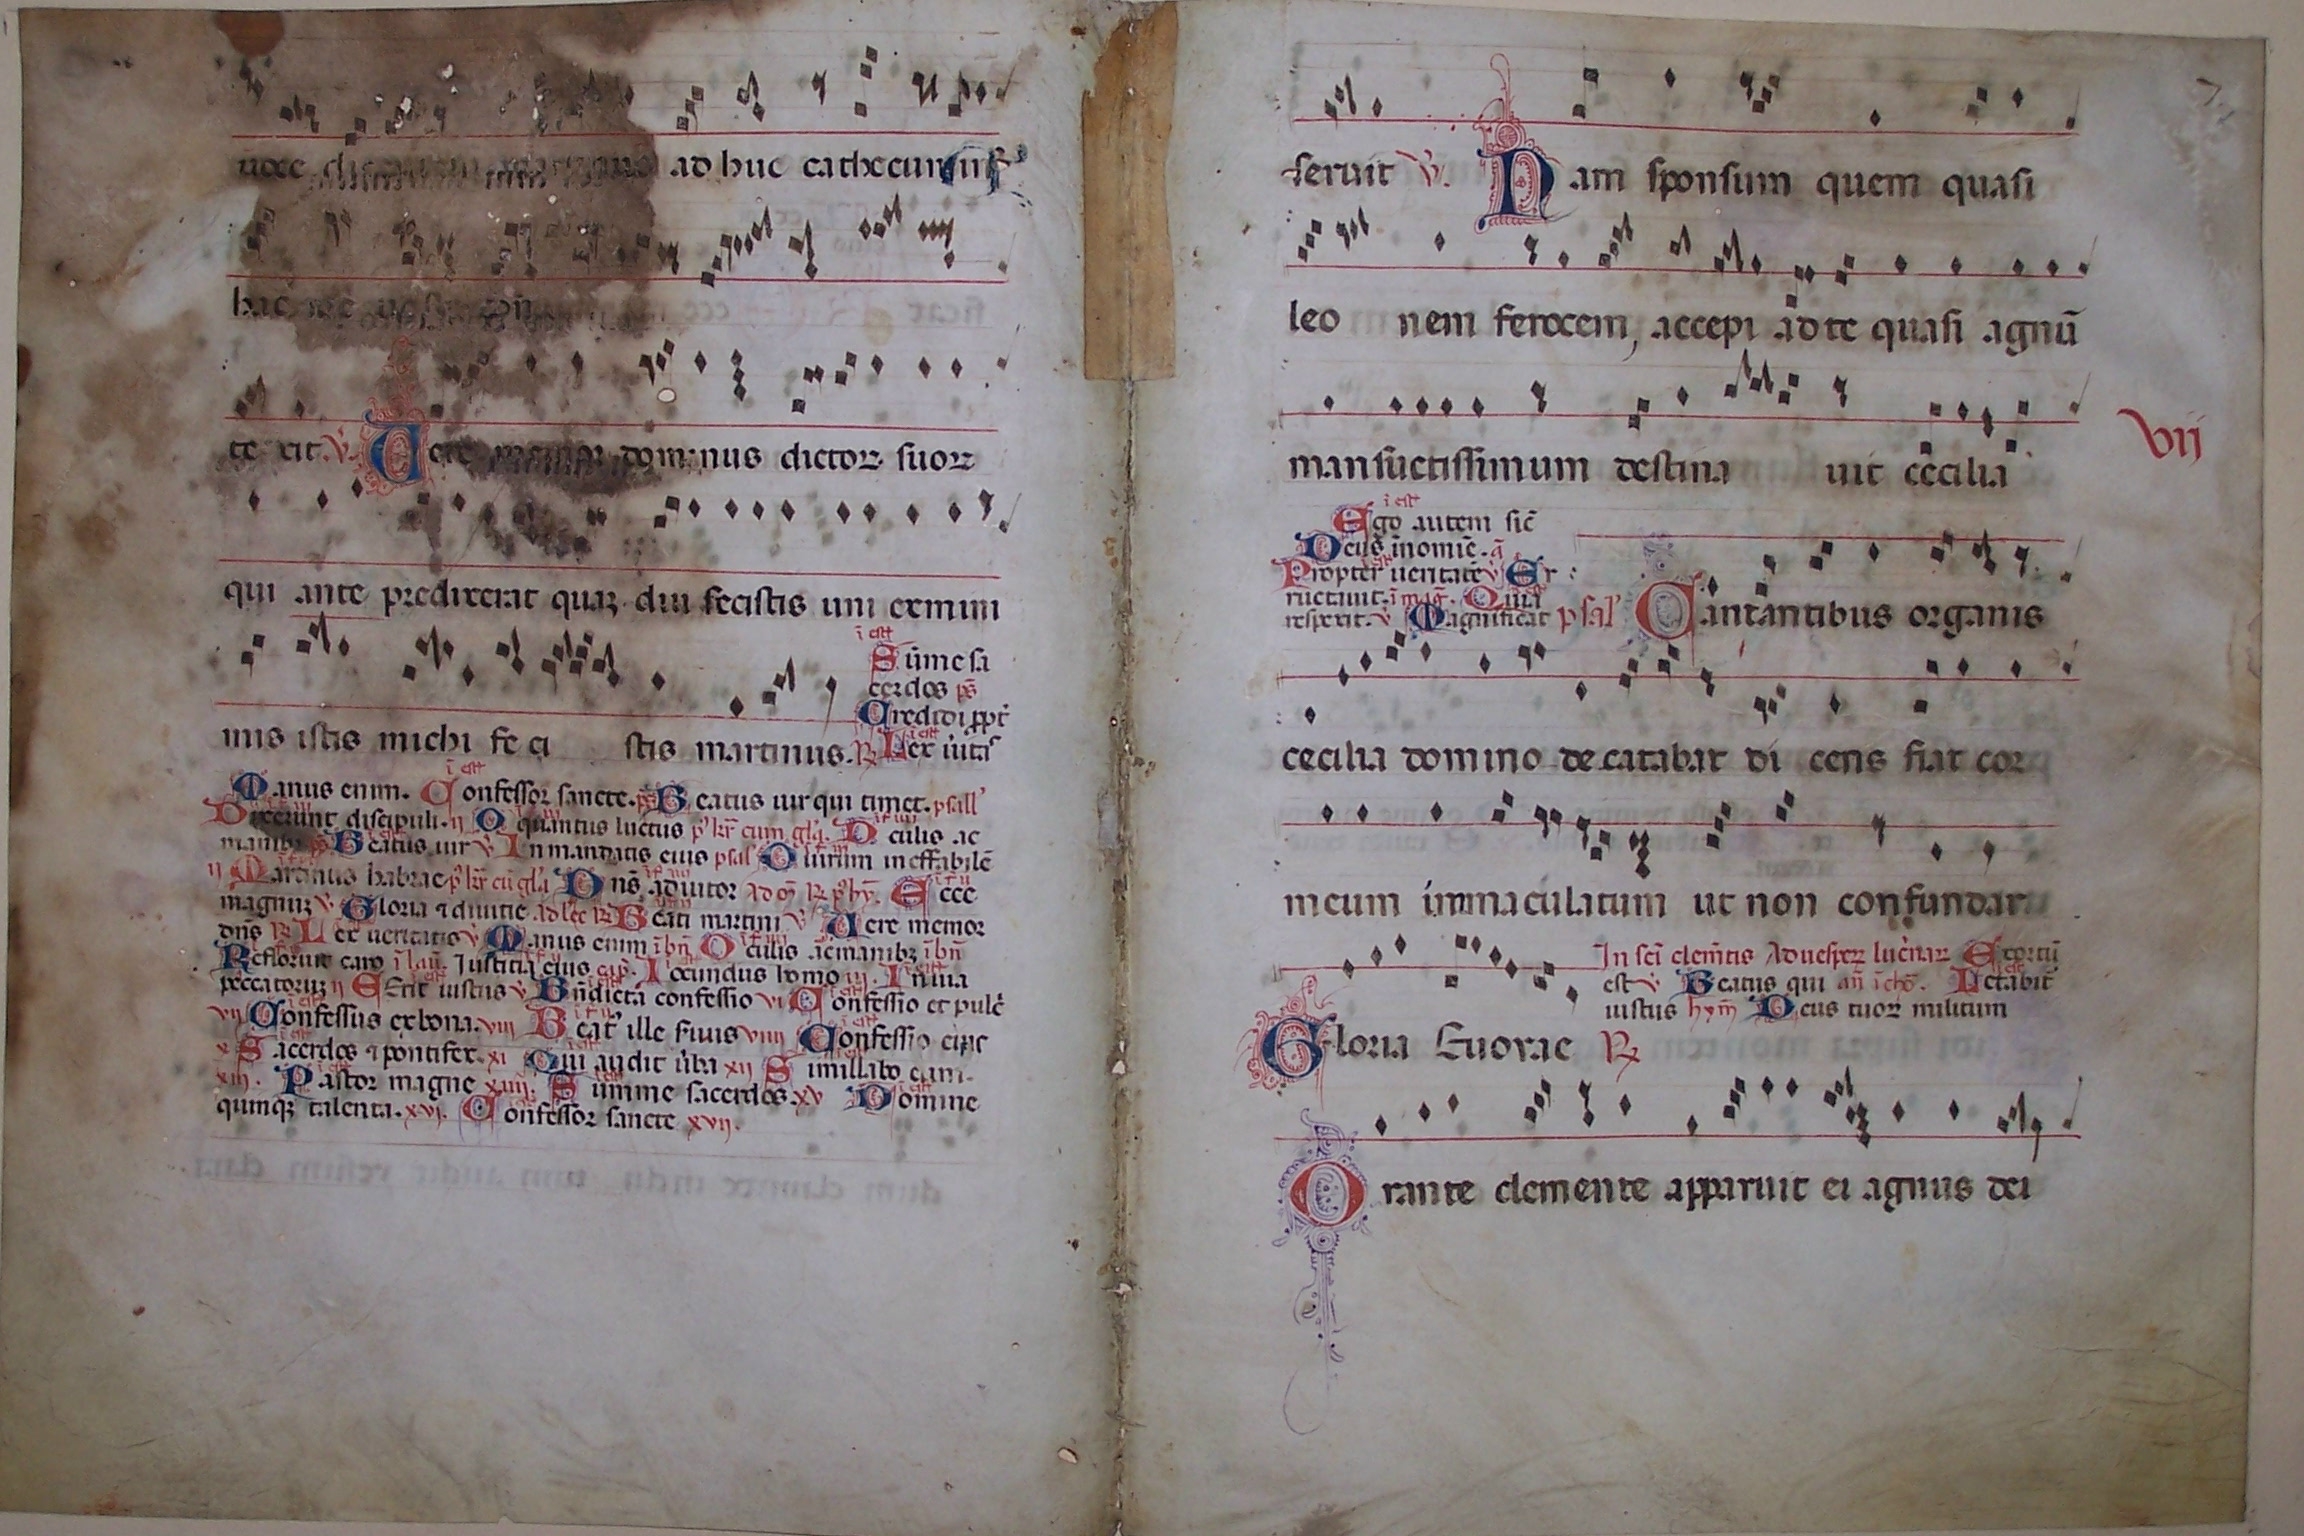 uoce ad huc cathecuminus
hac me ueste
te xit. V. Uere memor dominus dictorꝝ suorꝝ
qui ante predixerat quaꝫ diu fecistis uni ex mini
mis istis michi fe ci stis martinus. ℞ Lex ūitatˢ
ī est
Sūme sa
cerdos pˢ
Credidi ꝓpt̄
Manus enim. Confessor sancte. pˢ Beatus uir qui timet. psall'
Dixerunt discipuli. ii O quantus luctus cum gła. Oculis ac
manibꝫ Beatus uir V In mandatis eius psal' O uirum ineffabilē
ii Martinus habrae cū gła Dn̄s adiutor Ecce
magnuꝫ V Gloria ⁊ diuitie ℞ Beati martini V Uere memor
dn̄s ℞ Lex ueritatis V Manus enim ī bn̄ Oculis ac manibꝫ ī bn̄
Refloruit caro ī lau. Iustitia eius Iocundus homo iii. In uia
peccatoruꝫ ii Erit iustus V Bn̄dicta confessio vi Confessio et pulc̄
vii Confessus ex bona. viii Beat' ille seruus viiii Confessio eius
x Sacerdos ⁊ pontifex. xi Qui audit ūba xii Simillabo eum
xiii. Pastor magne xiiii. Summe sacerdos. xv Domine
quinqꝫ talenta. xvi. Confessor sancte xvii.
7
seruit V. Nam sponsum quem quasi
leo nem ferocem, accepi ad te quasi agnū
mansuetissimum destina uit cecilia
vij
ī est
Ego autem sic̄
Deus ī nomīe. ā
Propter ueritatē V Er
ructauit. ī maḡ. Quia
respexit. V Magnificat psal' Cantantibus organis
cecilia domino decātabat di cens fiat cor
meum immaculatum ut non confundar
In sc̄i clem̄tis Ad uesperꝝ luc̄nar Exortū
est V Beatus qui an̄ ī cho. Letabit̄
iustus hym̄ Deus tuorꝝ militum
Gloria Euouae ℞
Orante clemente apparuit ei agnus dei